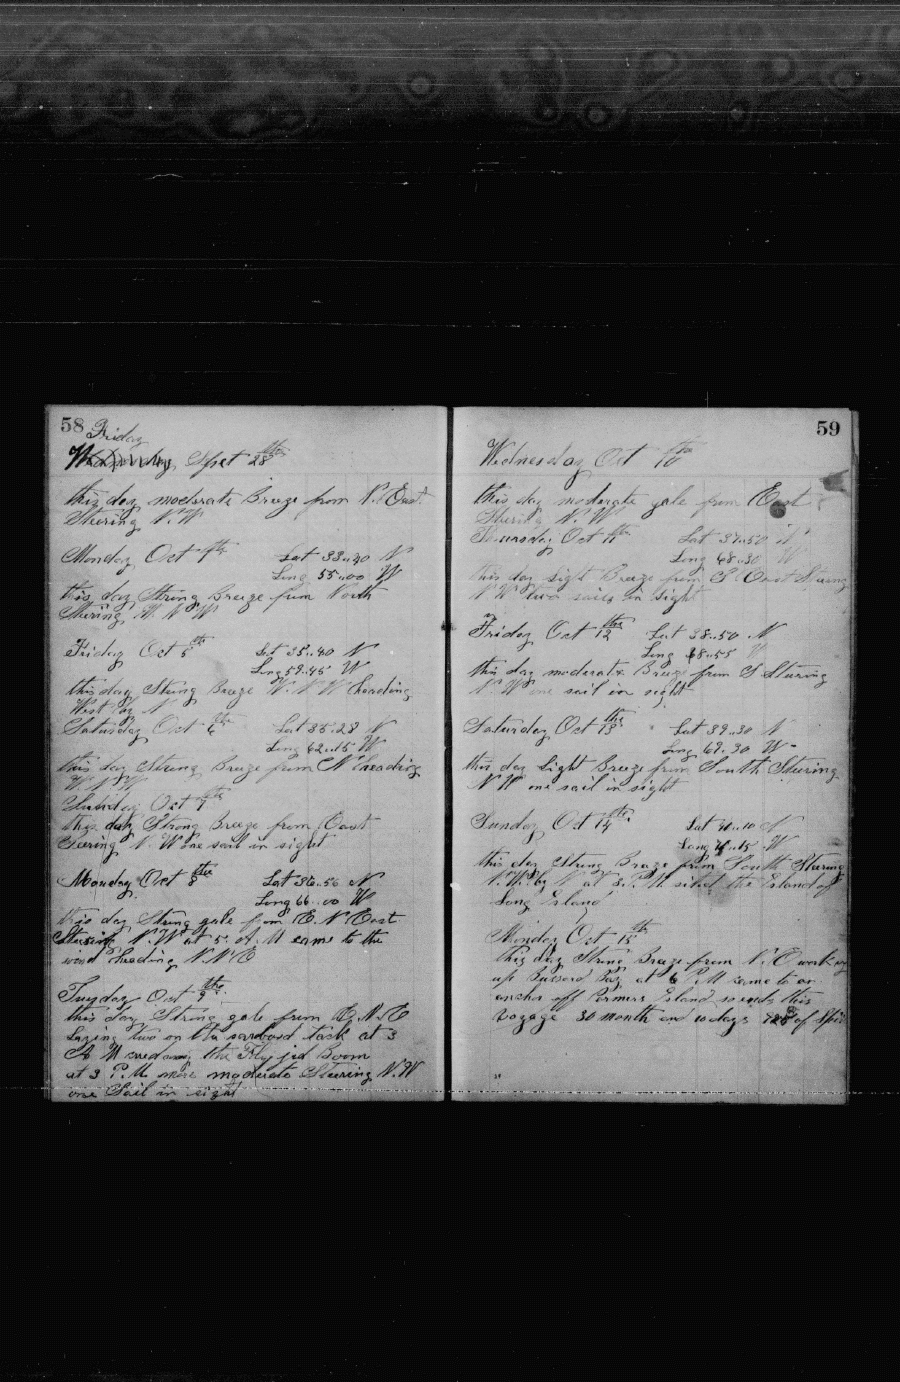 58
Friday
Wednesday Spet 28th
this day moderate Breeze from N. East
Steering N. W
Monday Oct 1th Lat 33..20 N
Long 55..00 W
this day Strong Breeze from North
Steering W. N W
Friday Oct 5th Lat 35..40 N
Long 59..45 W
this day Strong Breeze W. N W heading
West by N
Saturday Oct 6th Lat 35..28 N
Long 62..15 W
this day Strong Breeze from N heading
W N W
Sunday Oct 7th
this day Strong Breeze from East
Steering N. W one sail in sight
Monday Oct 8th Lat 36..56 N
Long 66..00 W
this day Strong gale from E. N. East
Steering N. W at 5. A. M came to the
wind heading N. N. E
Tuesday Oct 9th
this day Strong gale from E. N. E
Laying two on the tack at 3
A M the Fly jib Boom
at 3 P. M more moderate Steering N. W
one Sail in sight
59
Wednesday Oct 10th
this day moderate gale from East
Steering N. W
Thursday Oct 11th Lat 37..50 N
Long 68..30 W
this day Light Breeze from S East Steering
N W two sails in sight
Friday Oct 12th Lat 38..50 N
Long 68..55 W
this day moderate Breeze from S Steering
N. W one sail in sight
Saturday Oct 13th Lat 39..30 N
Long 69..30 W
this day Light Breeze from South Steering
N W one sail in sight
Sunday Oct 14th Lat 40..10 N
Long 70..15 W
this day Strong Breeze from South Steering
N. W. by N at 3. P. M the Island of
Long Island
Monday Oct 15th
this day Strong Breeze from N. E working
up Bussard Bay at 6 P. M came to an
anchor off Island so ends this
voyage 30 month and 10 days of Spir